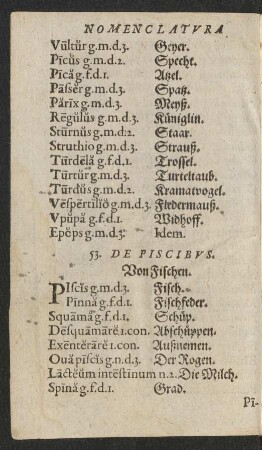 NOMENCLATVRA
Vūltŭr g.m.d.3. Geyer.
Pīcŭs g.m.d.2. Specht.
Pīcă g.f.d.1. Atzel.
Pāssĕr g.m.d.3. Spatz.
Părīx g.m.d.3. Meyß.
Rēgŭlŭs g.m.d.3. Küniglin.
Stūrnŭs g.m.d.2. Staar.
Struthio g.m.d.3. Strauß.
Tūrdēlă g.f.d.1. Trossel.
Tūrtŭr g.m.d.3. Turteltaub.
Tūrdŭs g.m.d.2. Kramatvogel.
Vēspērtīlĭŏ g.m.d.3. Fledermauß.
Vpŭpă g.f.d.1. Widhoff.
Epŏps g.m.d.3. Idem.
53. DE PISCIBVS.
Von Fischen.
PIscĭs g.m.d.3. Fisch.
Pīnnă g.f.d.1. Fischfeder.
Squāmă g.f.d.1. Schüp.
Dēsquāmārĕ 1.con. Abschüppen.
Exēntĕrārĕ 1.con. Außnemen.
Ouă pīscĭs g.n.d.3. Der Rogen.
Lāctĕŭm intēstīnum n.2. Die Milch.
Spīnă g.f.d.1. Grad.
Pī-